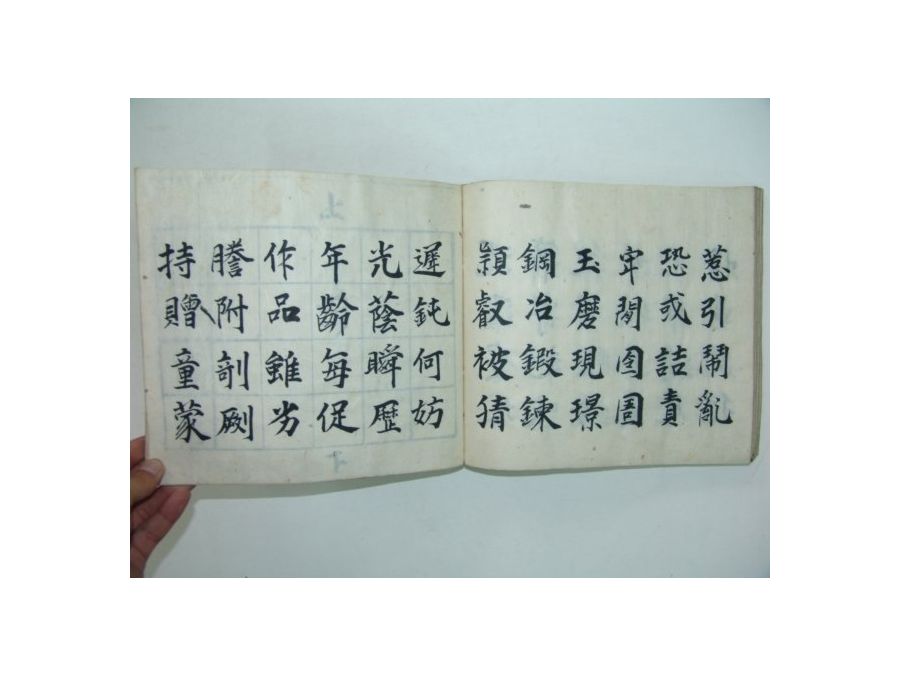 惹引鬧亂
恐或詰責
牢閉囹圄
玉磨現璟
鋼冶鍛鍊
穎叡被猜
遲鈍何妨
光蔭瞬歷
年齡每促
作品雖劣
謄附剞劂
持贈童蒙